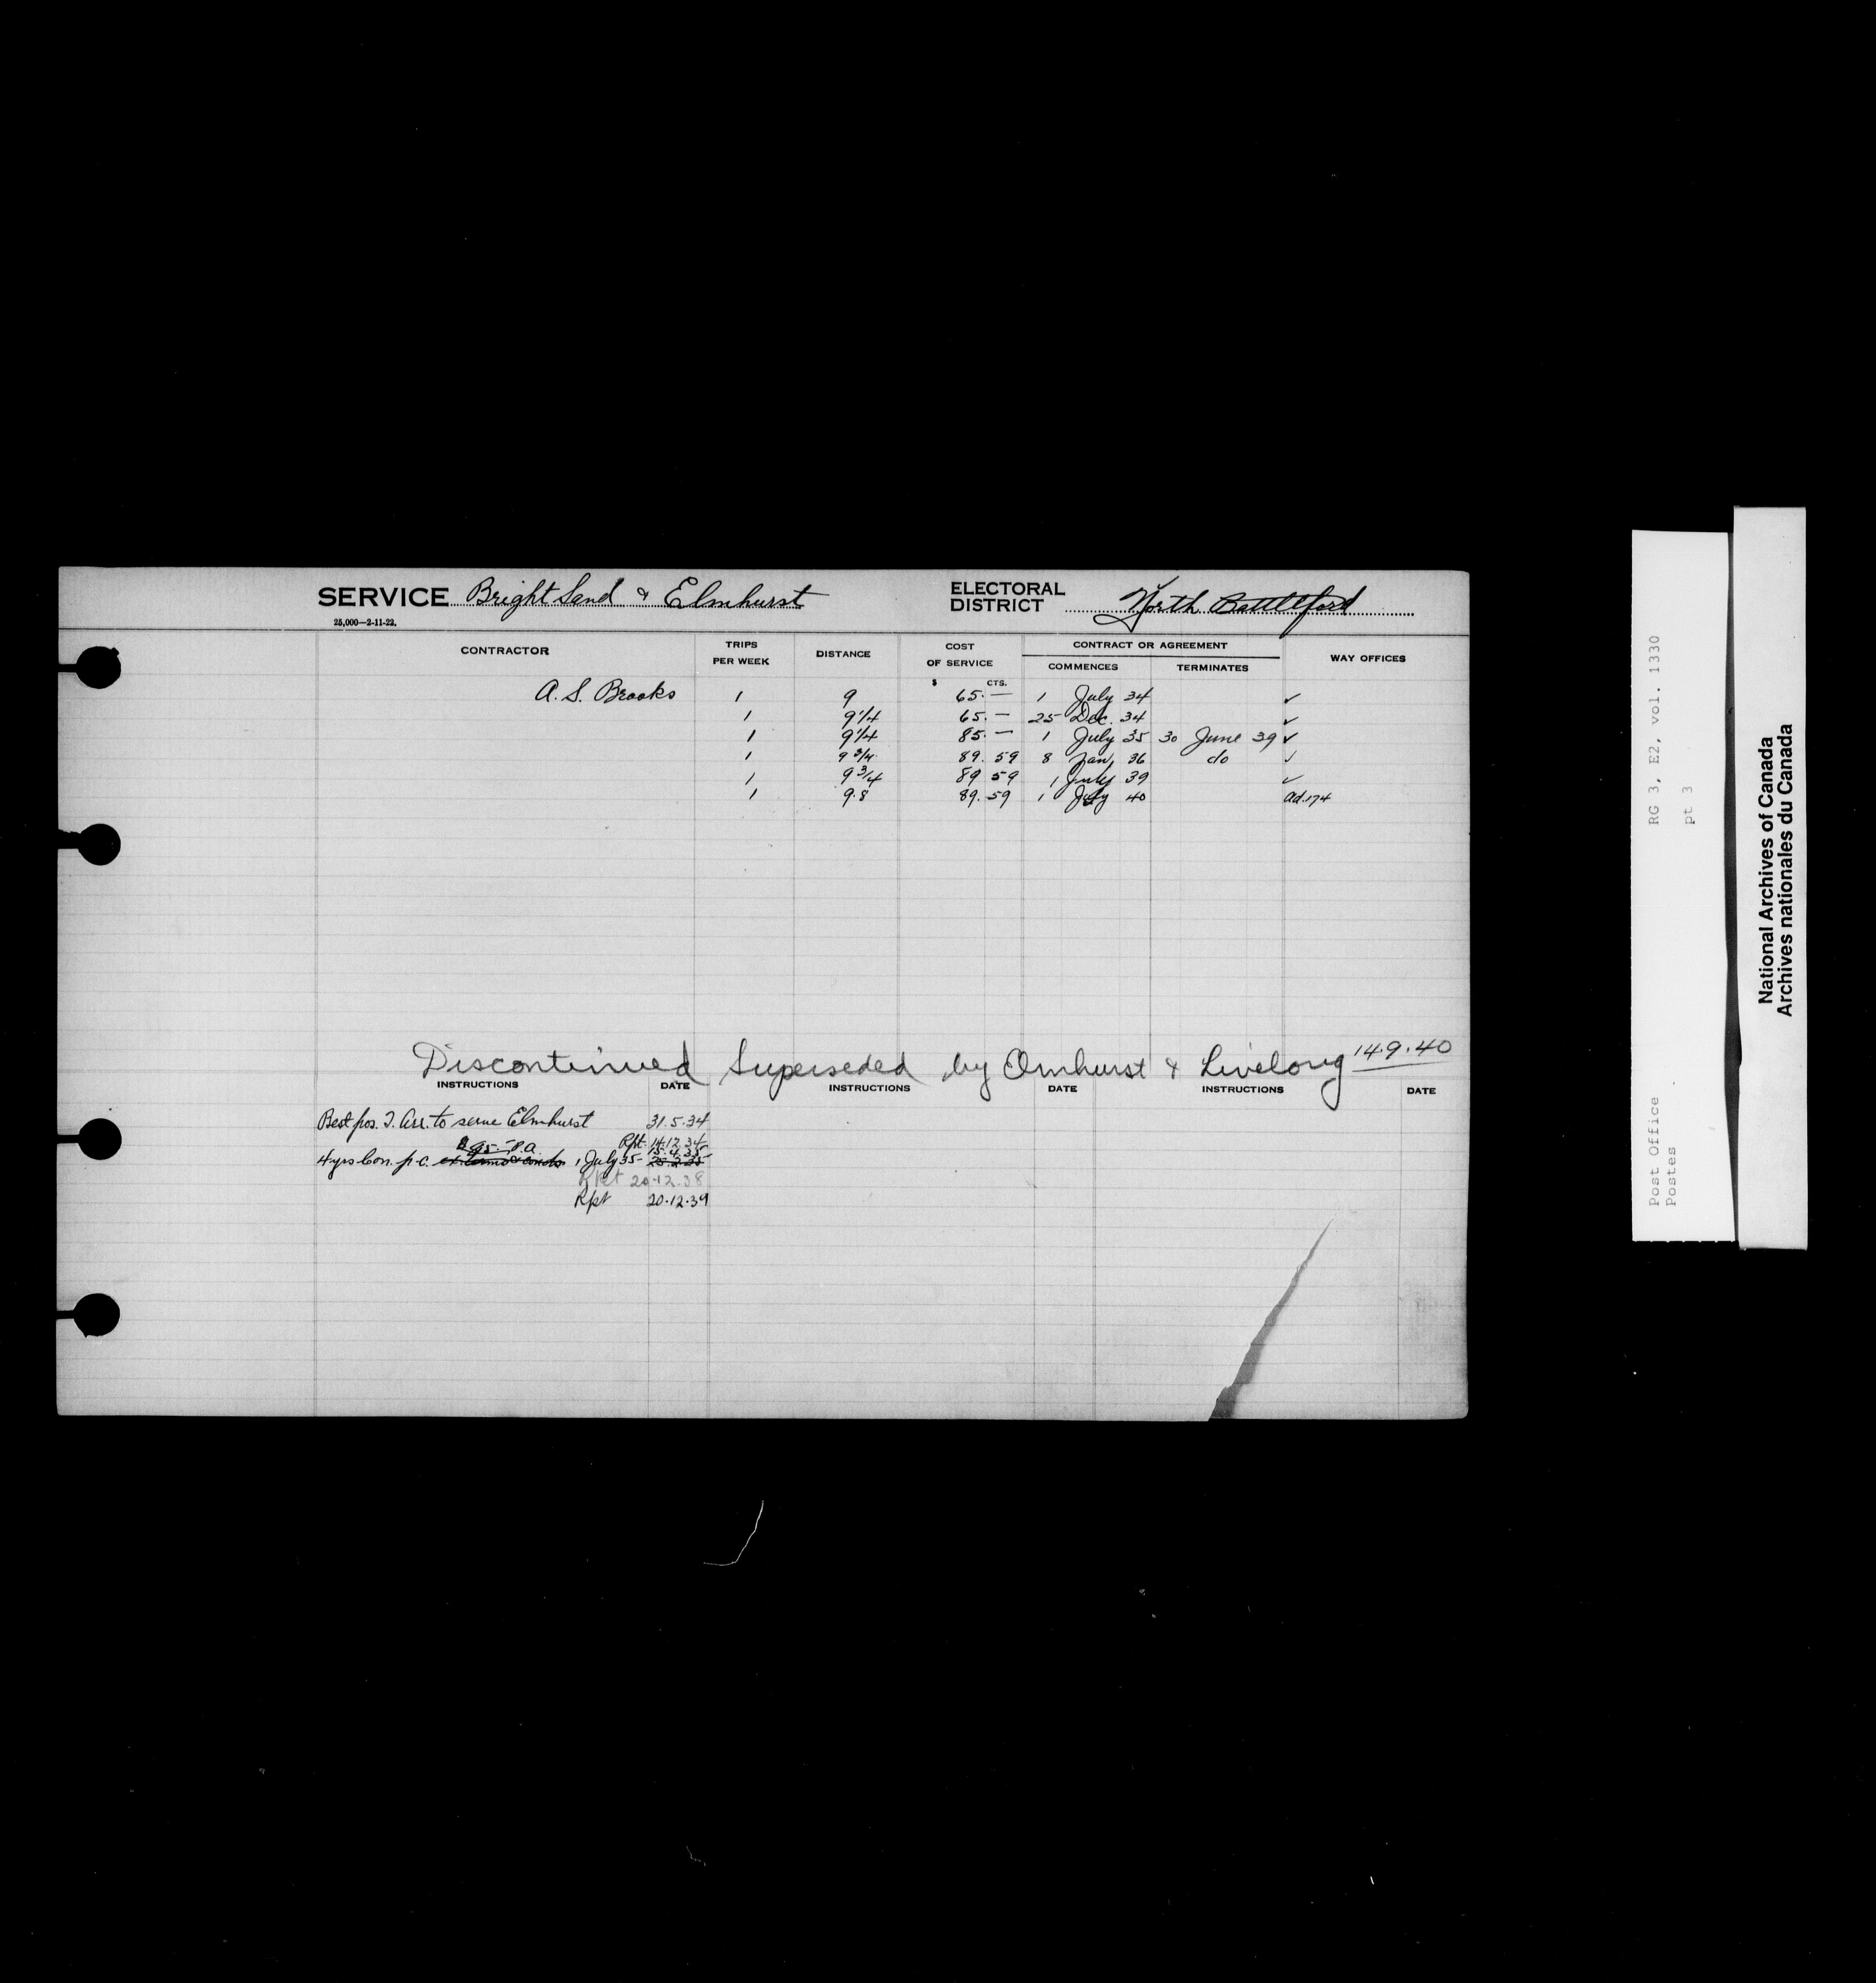 SERVICE Bright Sand & Elmhurst ELECTORAL DISTRICT North Battleford
25,000—2-11-22.
CONTRACTOR TRIPS PER WEEK DISTANCE COST OF SERVICE CONTRACT OR AGREEMENT COMMENCES TERMINATES WAY OFFICES
$ CTS.
A. S. Brooks 1 9 65.— 1 July 34 ✓
1 9 1/4 65.— 25 Dec. 34 ✓
1 9 1/4 85.— 1 July 35 30 June 39 ✓
1 9 3/4 89.59 8 Jan, 36 do ✓
1 9 3/4 89 59 1 July 39 ✓
1 9.8 89.59 1 July 40 Ad.174
Discontinued Superseded by Omhurst & Livelong 14.9.40
INSTRUCTIONS DATE INSTRUCTIONS DATE INSTRUCTIONS DATE
Best pos. T. Arr. to serve Elmhurst 31.5.34
Rpt. 14.12.34
P.A. 15.4.35
4 yrs Con. p.c. 1 July 35
Rpt 20.12.38
Rpt 20.12.39
Post Office RG 3, E2, vol. 1330
Postes pt 3
National Archives of Canada
Archives nationales du Canada